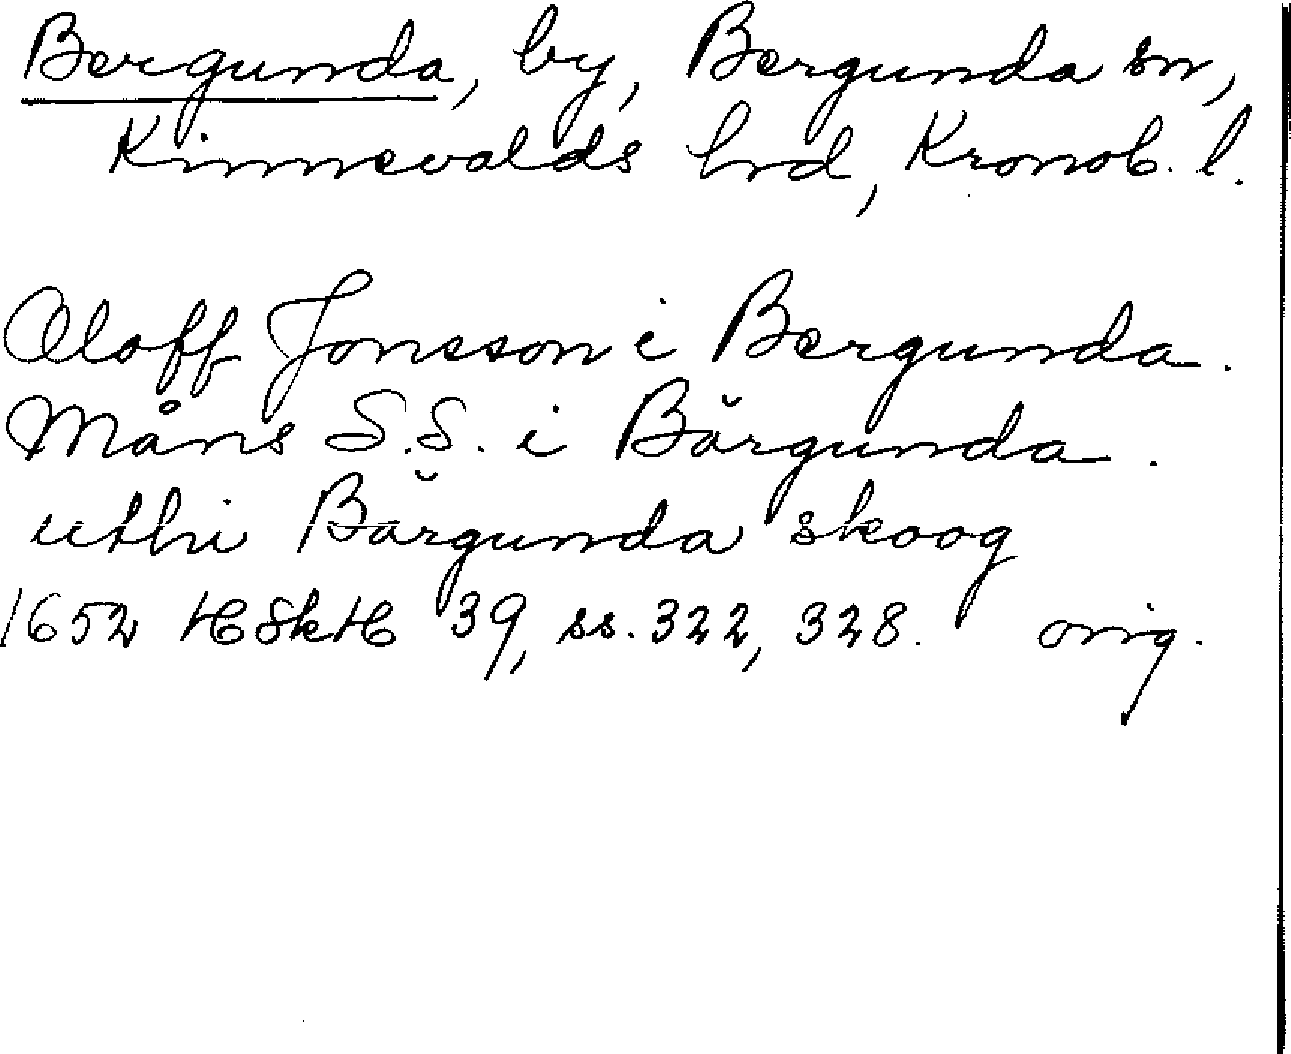 Bergunda, by, Bergunda sn,
Kinnevalds hrd, Kronob. l.
Oloff Jonsson i Bergunda.
Måns S.S. i Bărgunda.
uthi Bărgunda skoog
1652 HSkH 39, ss. 322, 328. orig.